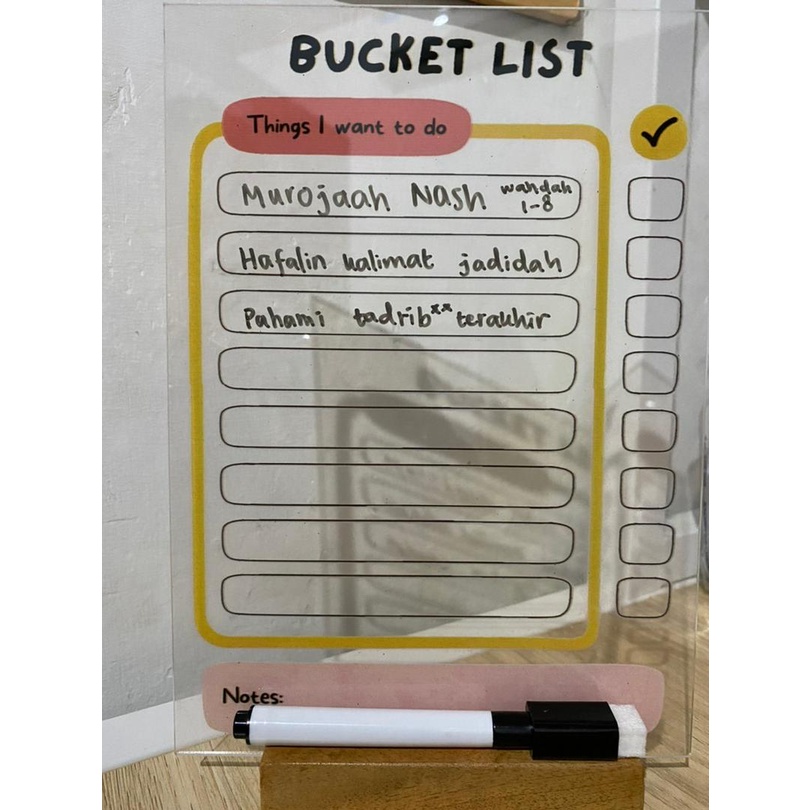 BUCKET LIST
Things I want to do
Murojaah Nash wahdah 1-8
Hafalin kalimat jadidah
Pahami tadrib** terakhir
Notes: